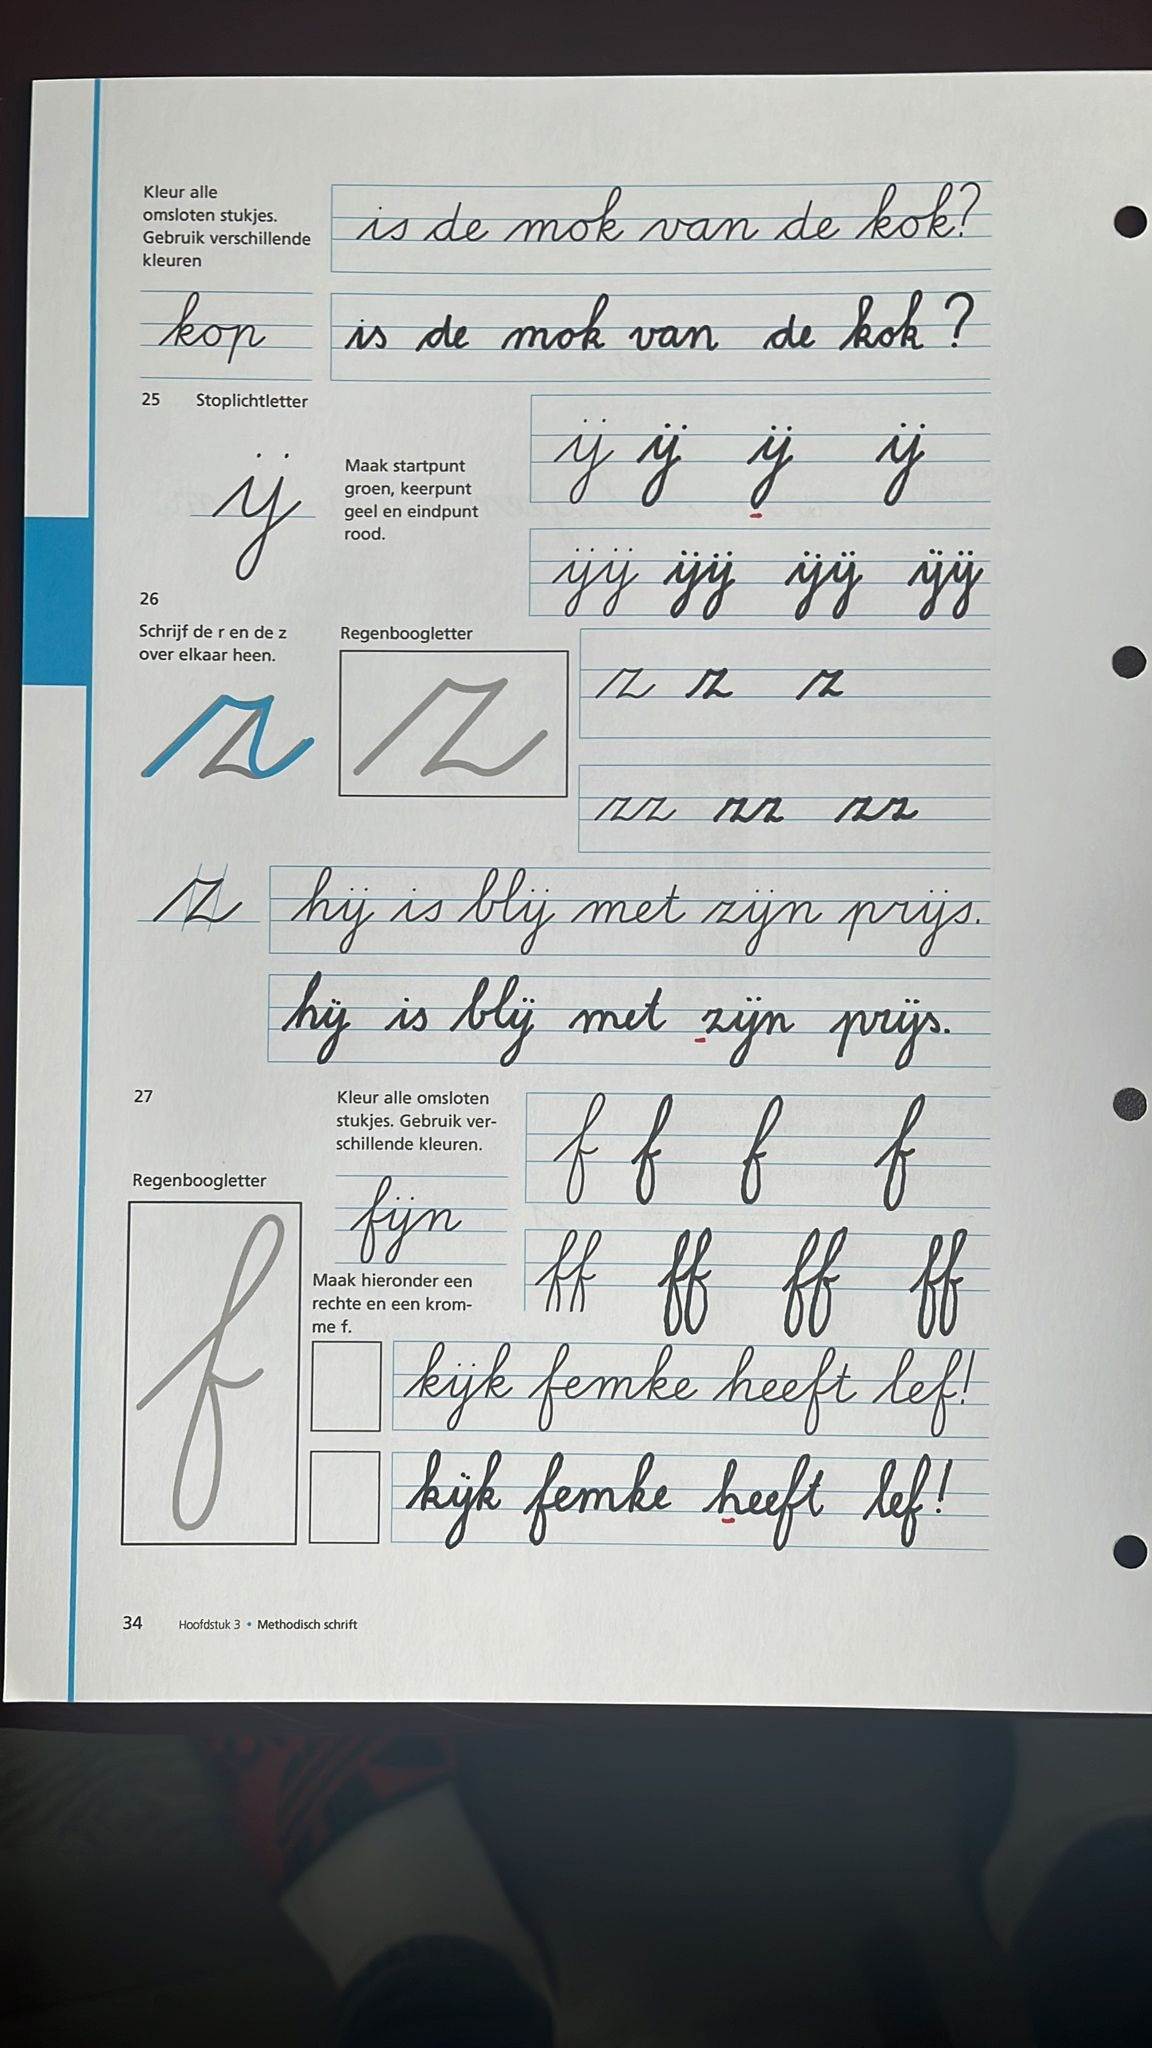 Kleur alle
omsloten stukjes.
Gebruik verschillende
kleuren
is de mok van de kok?
kop
is de mok van de kok?
25 Stoplichtletter
ij
Maak startpunt
groen, keerpunt
geel en eindpunt
rood.
ij ij ij ij
ijij ijij ijij ijij
26
Schrijf de r en de z
over elkaar heen.
Regenboogletter
z
z
z z z
zz zz zz
z
hij is blij met zijn prijs.
hij is blij met zijn prijs.
27
Kleur alle omsloten
stukjes. Gebruik ver-
schillende kleuren.
f f f f
Regenboogletter
f
fijn
ff ff ff ff
Maak hieronder een
rechte en een krom-
me f.
kijk femke heeft lef!
kijk femke heeft lef!
34 Hoofdstuk 3 • Methodisch schrift